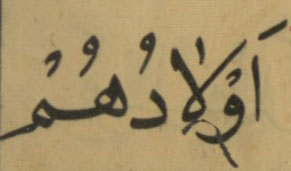 اَوْلَادُهُمْ